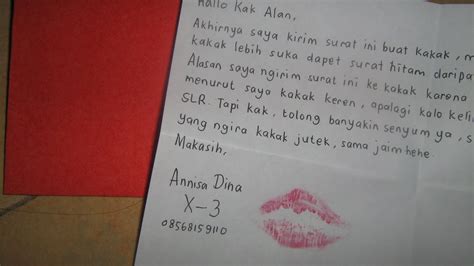 Hallo Kak Alan,
Akhirnya saya kirim surat ini buat kakak, m
kakak lebih suka dapet surat hitam daripa
Alasan saya ngirim surat ini ke kakak karena
menurut saya kakak keren, apalagi kalo keli
SLR. Tapi kak, tolong banyakin senyum ya, s
yang ngira kakak jutek, sama jaim hehe
Makasih,
Annisa Dina
X-3
08568159110